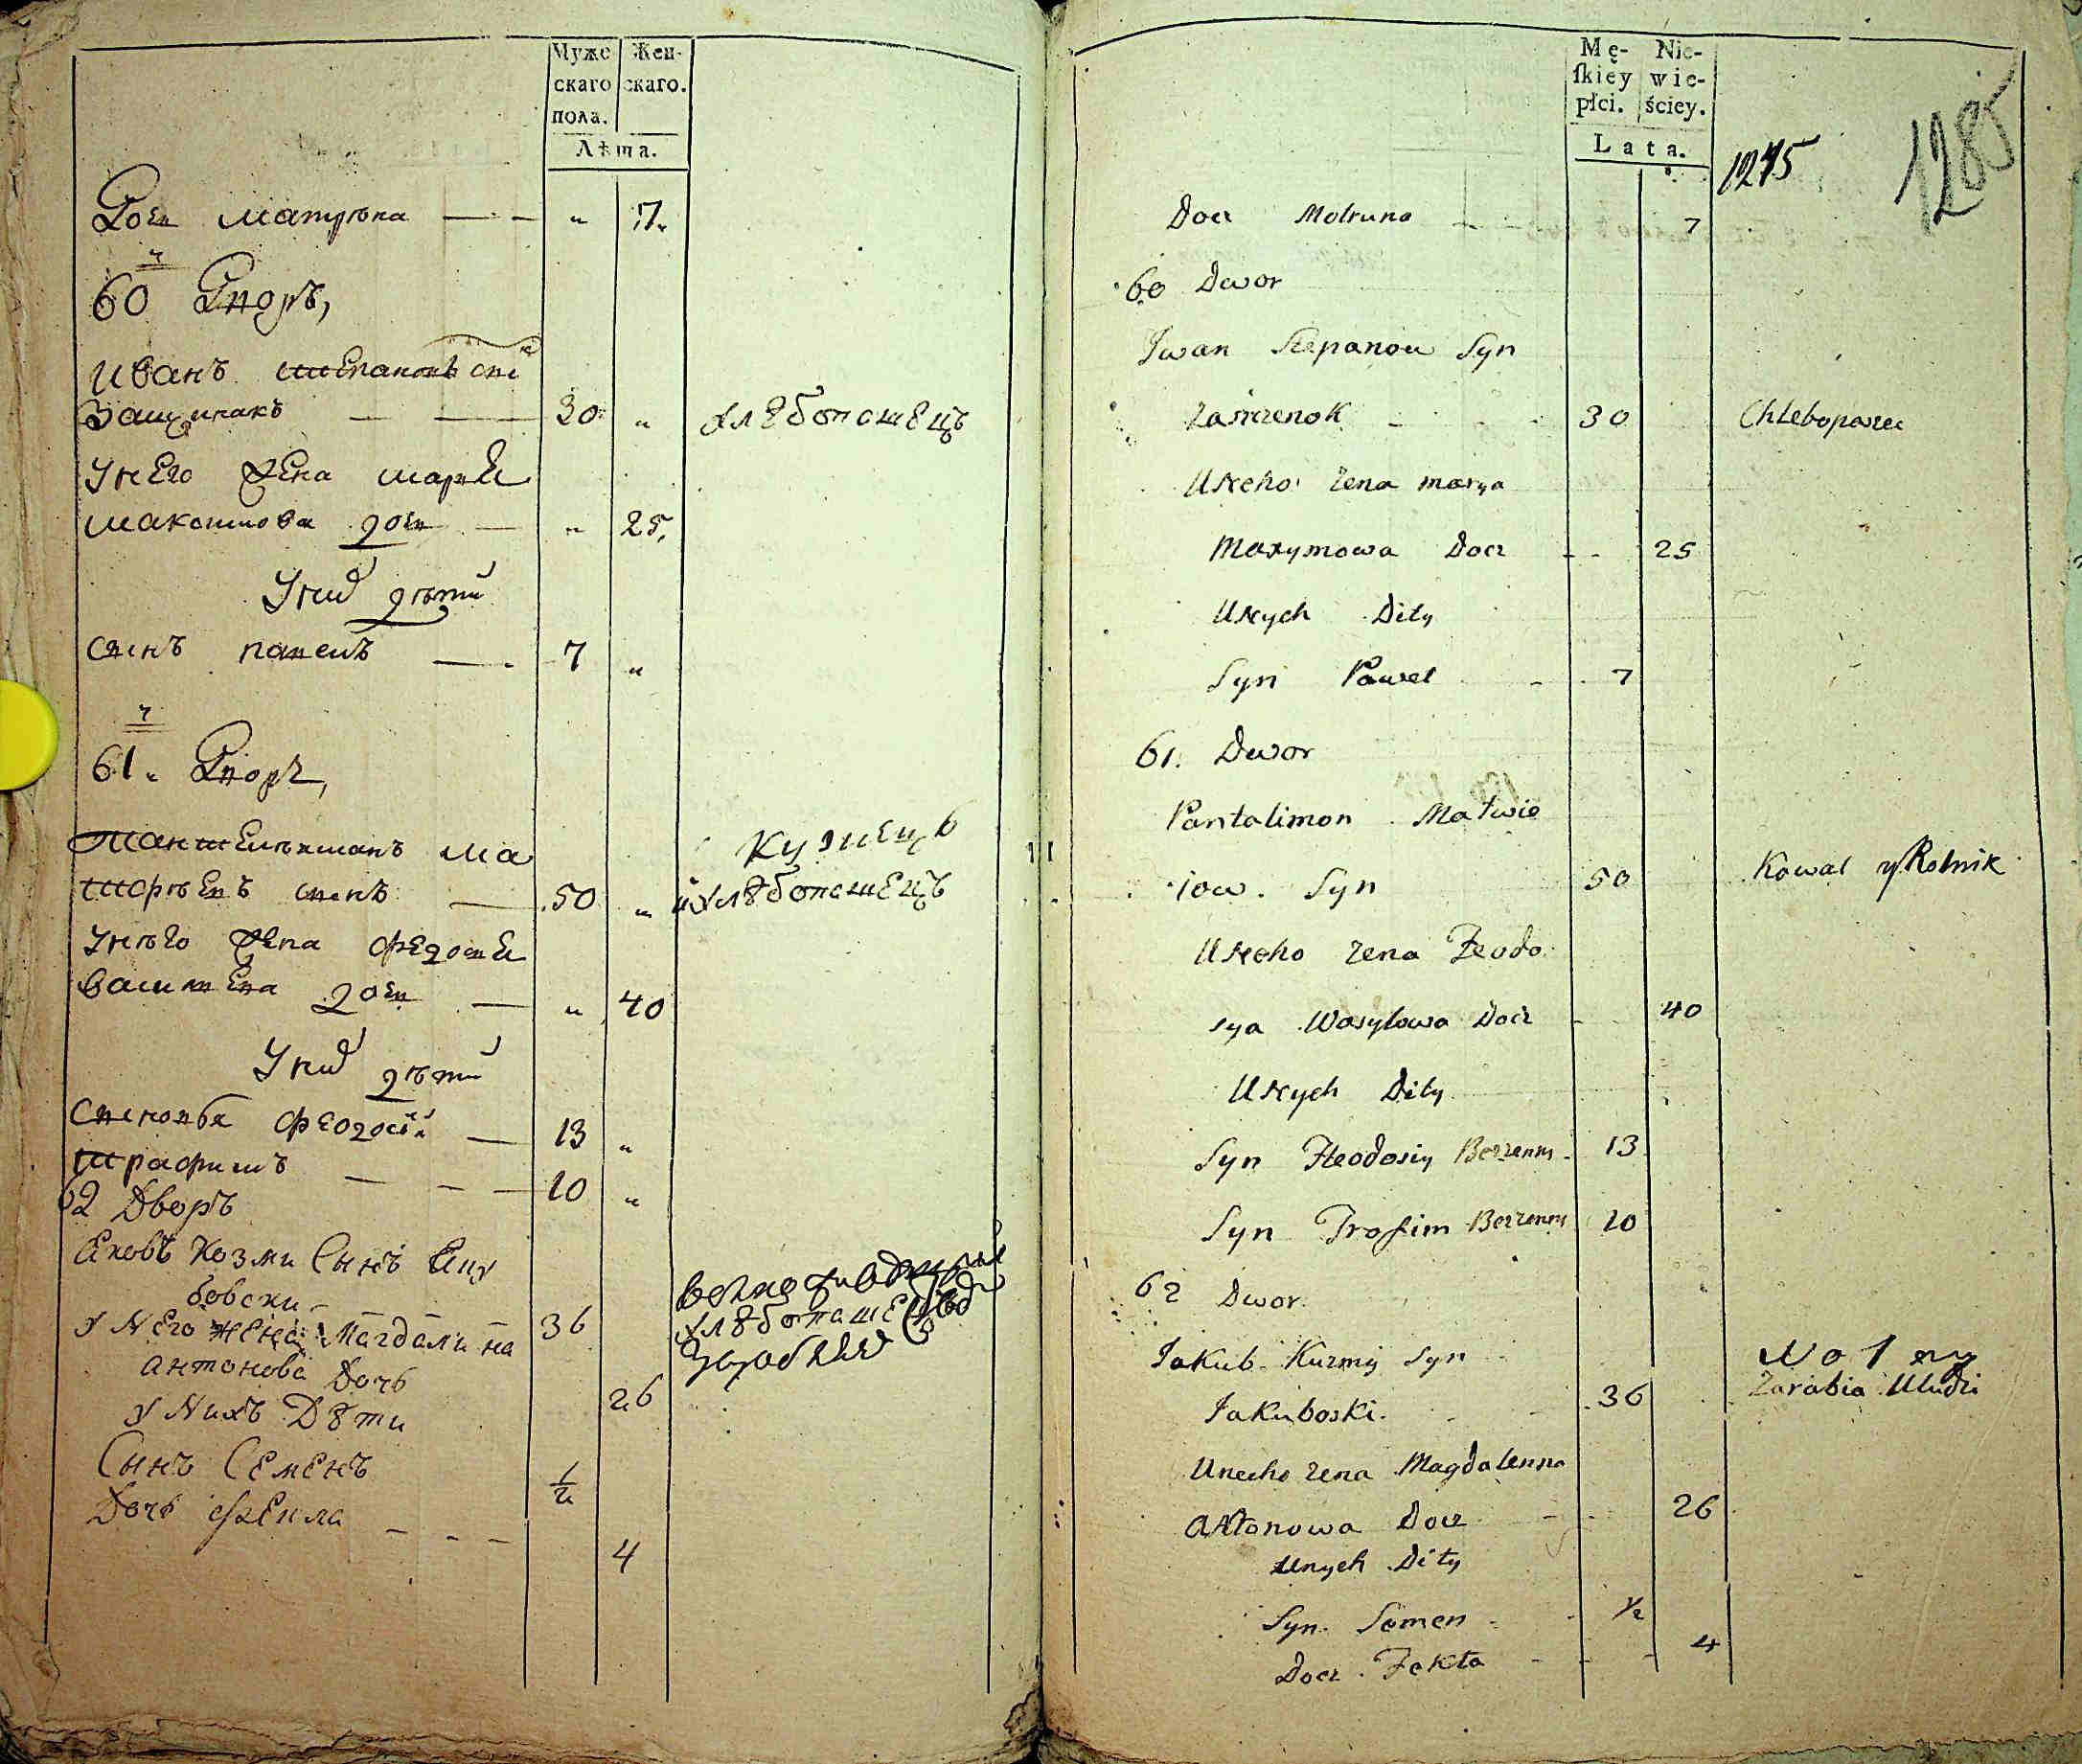 Муже Жен-
скаго скаго.
пола.
Лѣта.
Дочь Матрѣна — — „ 7.
60 й Дворъ,
Иванъ Степановъ сынъ
Защинакъ — — 30 „ хлѣбопашецъ
У него жена Марья
Максимова дочь — „ 25,
У них дѣти
Сынъ Павелъ — 7 „
61 й Дворъ,
Пантелѣимонъ Ма
Кузнецъ
тфѣевъ сынъ — 50 „ и хлѣбопашецъ
У нѣго жена Федосья
Васильева дочь — „ 40
У них дѣти
Сыновья Феодосій — 13 „
Трофимъ — — — 10 „
62 Дворъ
Яковъ Козми Сынъ Яку
бовски 36
хлѣбопашецъ
У Него жена Магдалина
Антонова Дочь 26
У Нихъ Дѣти
Сынъ Семенъ 1/2
Дочь Фекла — — — 4
Mę- Nie-
ſkiey wie-
płci. ściey.
Lata.
1275
1285
Docz Motruna — — 7
60 Dwor
Iwan Stepanow Syn
Zaszczenok 30 Chleboparzec
Uneho zena marya
Maxymowa Docz 25
Unych Dity
Syn Pawel 7
61. Dwor
Pantalimon Matwie
iow. Syn 50 Kowal y Rolnik
Uneho zena Feodo
sya Wasylowa Docz 40
Unych Dity
Syn Fteodosiy Bezzenny 13
Syn Trofim Bezzenny 10
62 Dwor.
Jakub Kuzmiy Syn
Wolny
Jakuboski. 36 Zarabia Uludzi
Unecho zena Magdalenna
Antonowa Docz 26
Unych Dity
Syn Semen 1/2
Docz Fekła 4